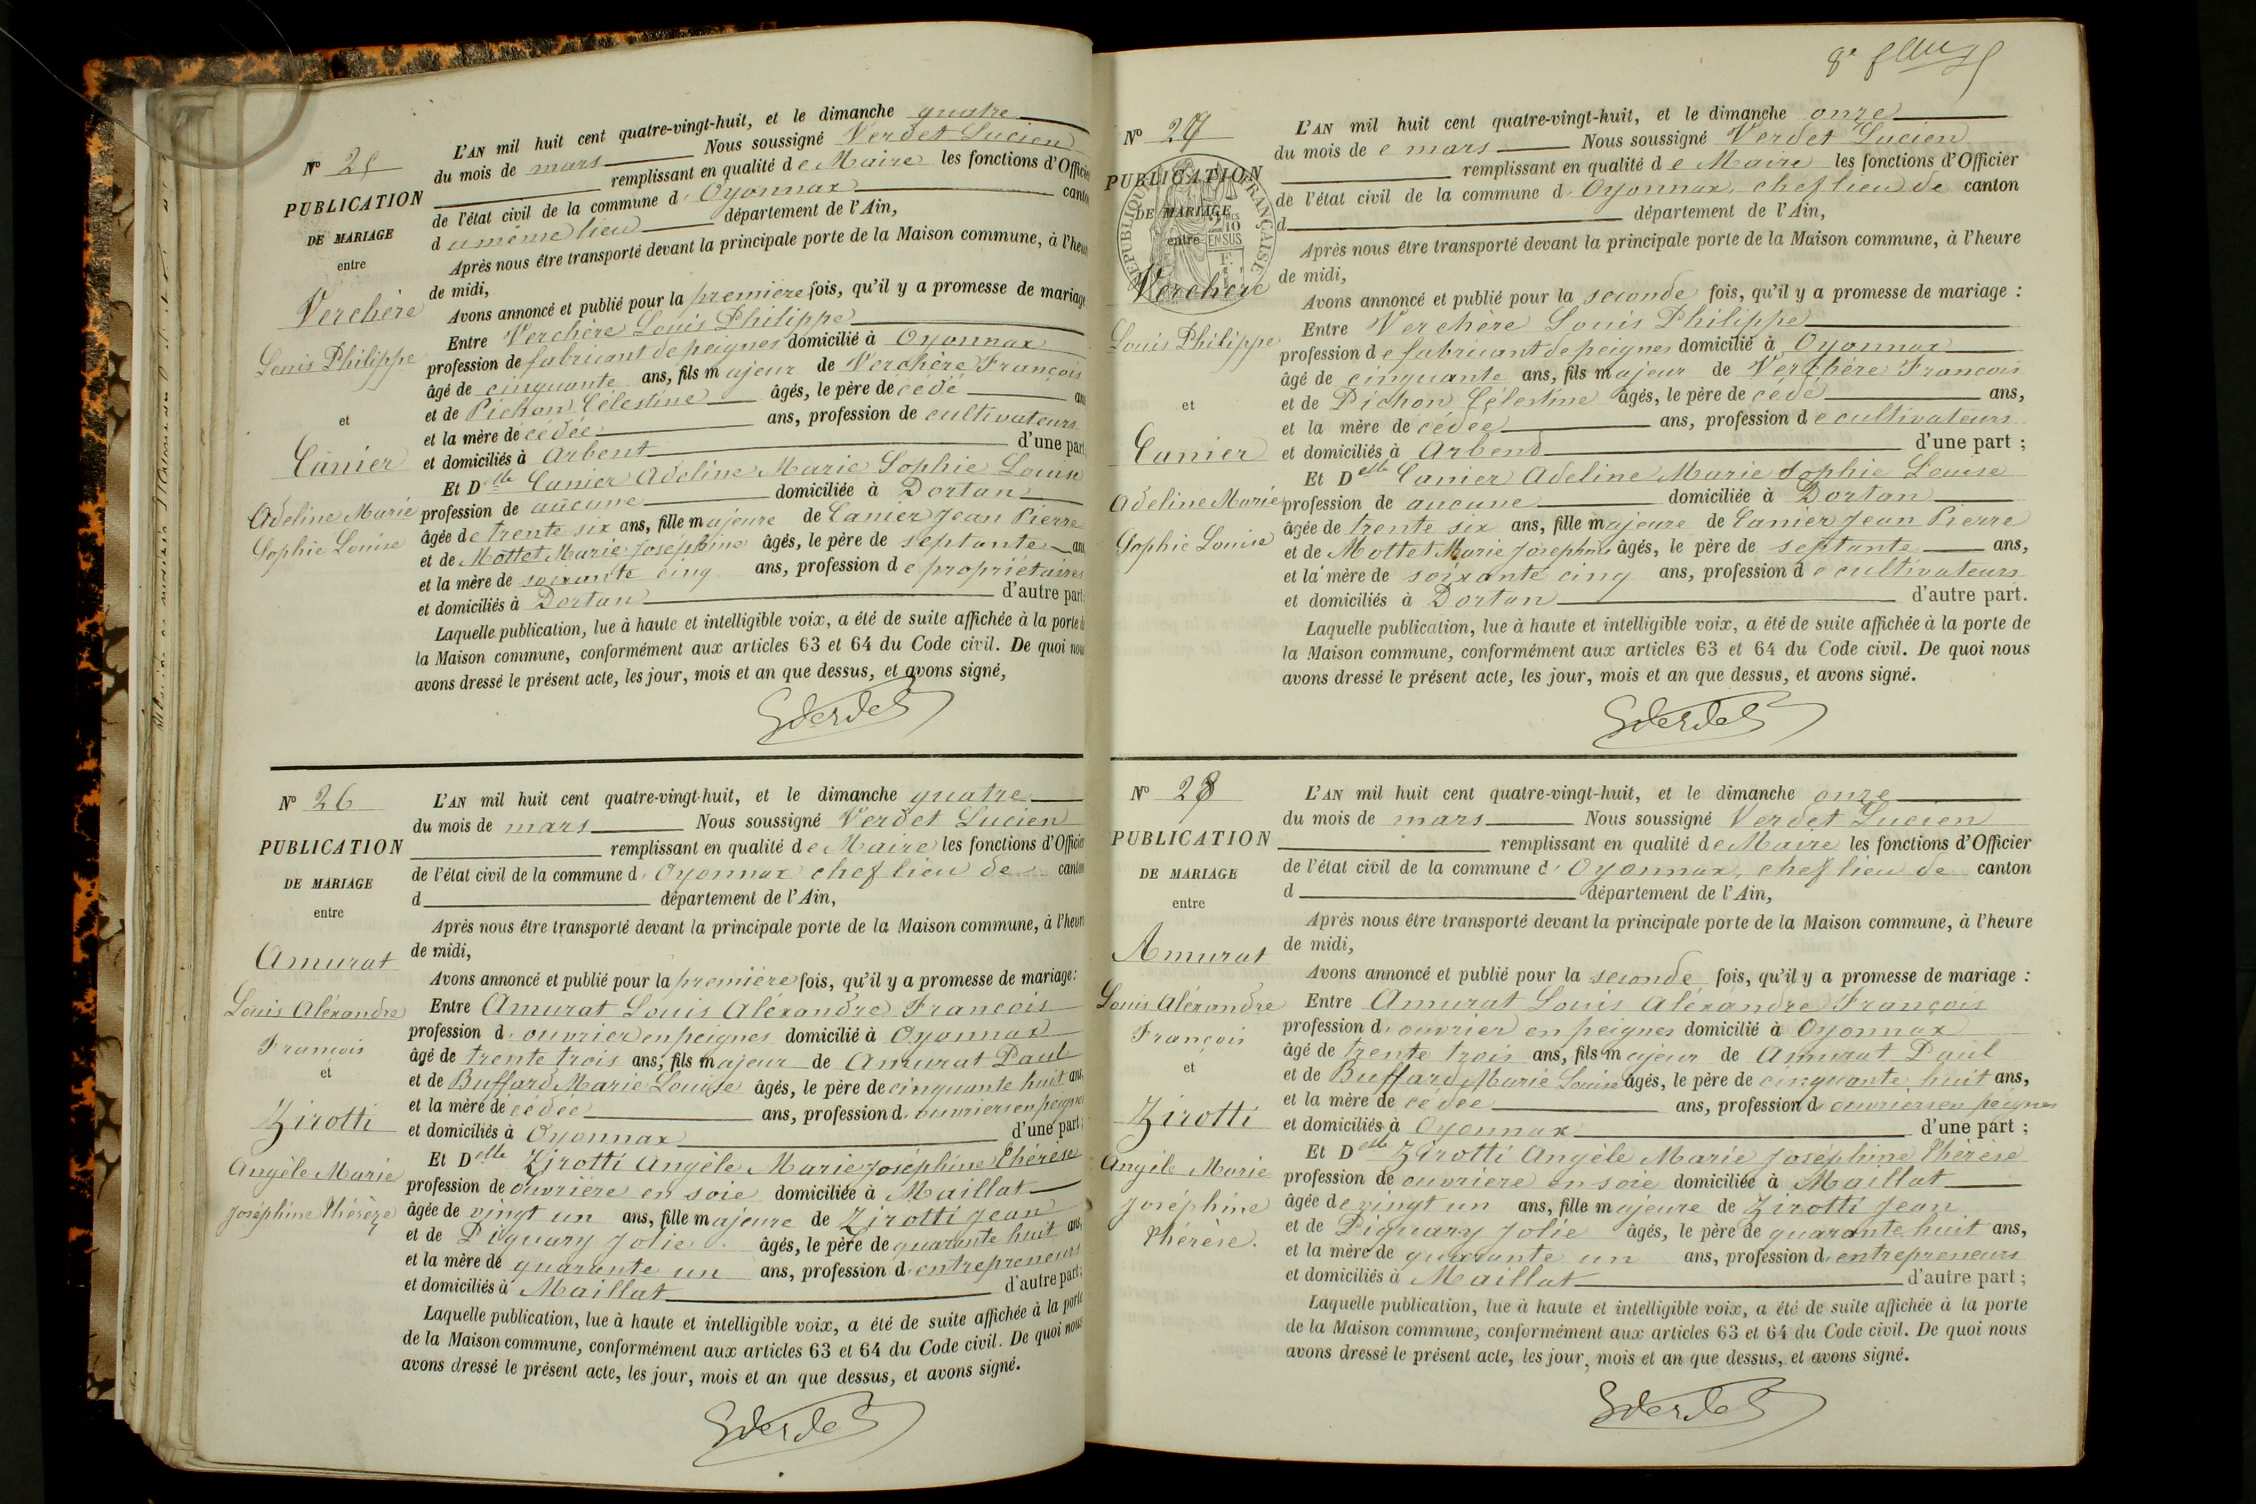 Nº 25
PUBLICATION
DE MARIAGE
entre
Verchère
Louis Philippe
et
Canier
Adeline Marie
Sophie Louise
L'AN mil huit cent quatre-vingt-huit, et le dimanche quatre
du mois de mars Nous soussigné Verdet Lucien
remplissant en qualité de Maire les fonctions d'Officier
de l'état civil de la commune d'Oyonnax canton
du même lieu département de l'Ain,
Après nous être transporté devant la principale porte de la Maison commune, à l'heure
de midi,
Avons annoncé et publié pour la première fois, qu'il y a promesse de mariage
Entre Verchère Louis Philippe
profession de fabricant de peignes domicilié à Oyonnax
âgé de cinquante ans, fils majeur de Verchère François
et de Pichon Célestine âgés, le père de cédé ans
et la mère de cédée ans, profession de cultivateurs
et domiciliés à Arbent d'une part
Et Delle Canier Adéline Marie Sophie Louise
profession de aucune domiciliée à Dortan
âgée de trente six ans, fille majeure de Canier Jean Pierre
et de Mottet Marie Joséphine âgés, le père de septante ans
et la mère de soixante cinq ans, profession de propriétaires
et domiciliés à Dortan d'autre part.
Laquelle publication, lue à haute et intelligible voix, a été de suite affichée à la porte de
la Maison commune, conformément aux articles 63 et 64 du Code civil. De quoi nous
avons dressé le présent acte, les jour, mois et an que dessus, et avons signé,
LVerdet
Nº 26
PUBLICATION
DE MARIAGE
entre
Amurat
Louis Aléxandre
François
et
Zirotti
Angèle Marie
Joséphine Thérèze
L'AN mil huit cent quatre-vingt-huit, et le dimanche quatre
du mois de mars Nous soussigné Verdet Lucien
remplissant en qualité de Maire les fonctions d'Officier
de l'état civil de la commune d'Oyonnax chef lieu de canton
d département de l'Ain,
Après nous être transporté devant la principale porte de la Maison commune, à l'heure
de midi,
Avons annoncé et publié pour la première fois, qu'il y a promesse de mariage :
Entre Amurat Louis Aléxandre François
profession d'ouvrier en peignes domicilié à Oyonnax
âgé de trente trois ans, fils majeur de Amurat Paul
et de Buffard Marie Louise âgés, le père de cinquante huit ans,
et la mère de cédée ans, profession d'ouvriers en peignes
et domiciliés à Oyonnax d'une part ;
Et Delle Zirotti Angèle Marie Joséphine Thérèse
profession de ouvrière en soie domiciliée à Maillat
âgée de vingt un ans, fille majeure de Zirotti Jean
et de Piquary Jolie âgés, le père de quarante huit ans,
et la mère de quarante un ans, profession d'entrepreneurs
et domiciliés à Maillat d'autre part ;
Laquelle publication, lue à haute et intelligible voix, a été de suite affichée à la porte
de la Maison commune, conformément aux articles 63 et 64 du Code civil. De quoi nous
avons dressé le présent acte, les jour, mois et an que dessus, et avons signé.
LVerdet
8e
Nº 27
PUBLICATION
DE MARIAGE
entre
RÉPUBLIQUE FRANÇAISE
2/10
EN SUS
Verchère
Louis Philippe
et
Canier
Adeline Marie
Sophie Louise
L'AN mil huit cent quatre-vingt-huit, et le dimanche onze
du mois de e mars Nous soussigné Verdet Lucien
remplissant en qualité de Maire les fonctions d'Officier
de l'état civil de la commune d'Oyonnax, chef lieu de canton
d département de l'Ain,
Après nous être transporté devant la principale porte de la Maison commune, à l'heure
de midi,
Avons annoncé et publié pour la seconde fois, qu'il y a promesse de mariage :
Entre Verchère Louis Philippe
profession de fabricant de peignes domicilié à Oyonnax
âgé de cinquante ans, fils majeur de Verchère Francois
et de Pichon Célestine âgés, le père de cédé ans,
et la mère de cédée ans, profession de cultivateurs
et domiciliés à Arbent d'une part ;
Et Delle Canier Adeline Marie Sophie Louise
profession de aucune domiciliée à Dortan
âgée de trente six ans, fille majeure de Canier Jean Pierre
et de Mottet Marie Joséphine âgés, le père de septante ans,
et la mère de soixante cinq ans, profession de cultivateurs
et domiciliés à Dortan d'autre part.
Laquelle publication, lue à haute et intelligible voix, a été de suite affichée à la porte de
la Maison commune, conformément aux articles 63 et 64 du Code civil. De quoi nous
avons dressé le présent acte, les jour, mois et an que dessus, et avons signé.
LVerdet
Nº 28
PUBLICATION
DE MARIAGE
entre
Amurat
Louis Aléxandre
François
et
Zirotti
Angèle Marie
Joséphine
Thérèse.
L'AN mil huit cent quatre-vingt-huit, et le dimanche onze
du mois de mars Nous soussigné Verdet Lucien
remplissant en qualité de Maire les fonctions d'Officier
de l'état civil de la commune d'Oyonnax, chef lieu de canton
d département de l'Ain,
Après nous être transporté devant la principale porte de la Maison commune, à l'heure
de midi,
Avons annoncé et publié pour la seconde fois, qu'il y a promesse de mariage :
Entre Amurat Louis Aléxandre François
profession d'ouvrier en peignes domicilié à Oyonnax
âgé de trente trois ans, fils majeur de Amurat Paul
et de Buffard Marie Louise âgés, le père de cinquante huit ans,
et la mère de cédée ans, profession d'ouvriers en peignes
et domiciliés à Oyonnax d'une part ;
Et Delle Zirotti Angèle Marie Joséphine Thérèse
profession de ouvrière en soie domiciliée à Maillat
âgée de vingt un ans, fille majeure de Zirotti Jean
et de Piquary Jolie âgés, le père de quarante huit ans,
et la mère de quarante un ans, profession d'entrepreneurs
et domiciliés à Maillat d'autre part ;
Laquelle publication, lue à haute et intelligible voix, a été de suite affichée à la porte
de la Maison commune, conformément aux articles 63 et 64 du Code civil. De quoi nous
avons dressé le présent acte, les jour, mois et an que dessus, et avons signé.
LVerdet